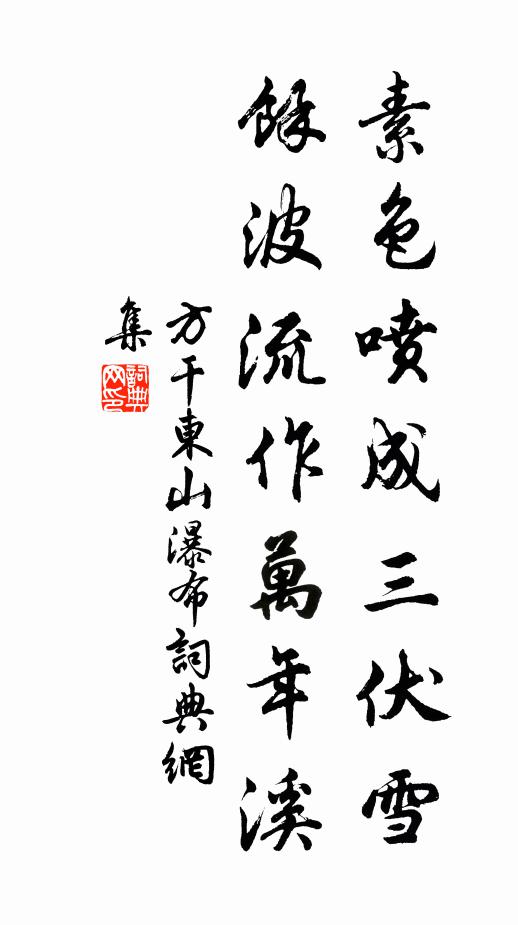 素色噴成三伏雪
餘波流作萬年溪
方干東山瀑布詞典網
集
詞典網印